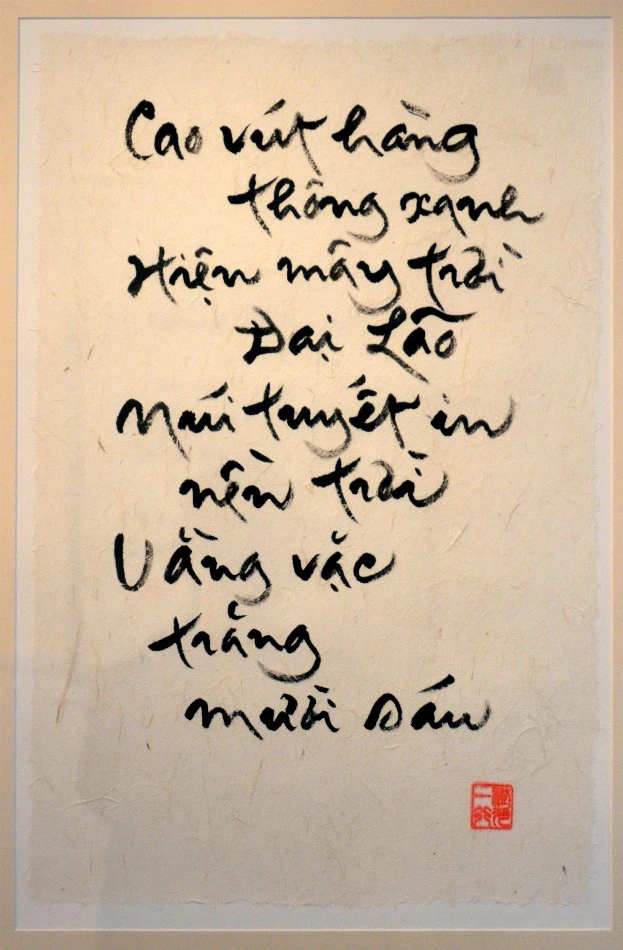 Cao vút hàng
thông xanh
Hiện mây trời
Đại Lão
Núi tuyết in
nền trời
Vằng vặc
trăng
mười sáu